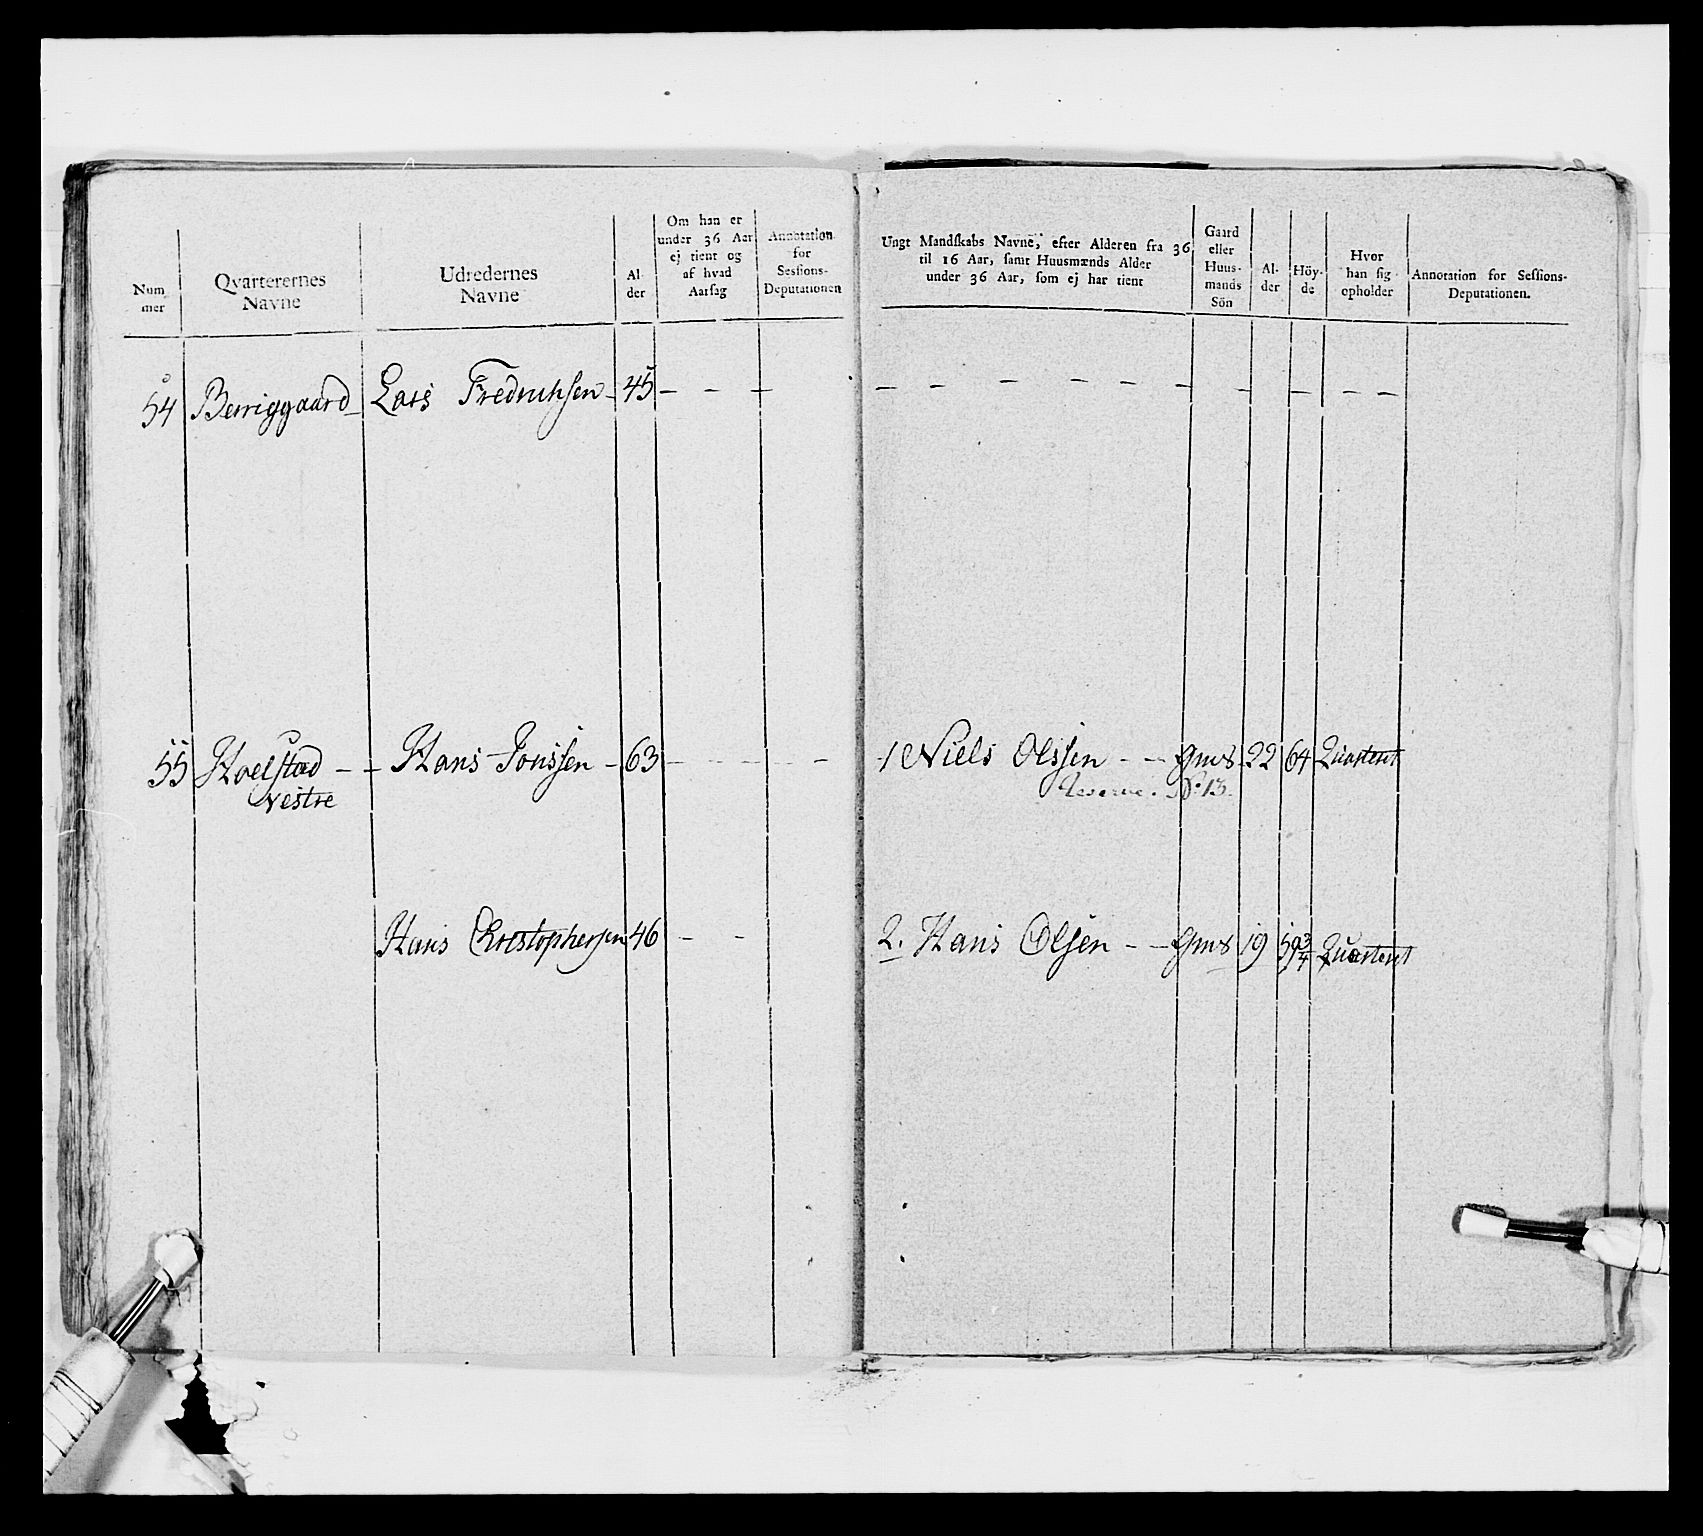 Num
mer
Qvarterernes
Navne
Udredernes
Navne
Al
der
Om han er
under 36 Aar
ej tient og
af hvad
Aarsag
Annotation
for
Sessions-
Deputationen
54 Berriggaard Lars Fredrichsen 45
55 Hoelstad Hans Jonssen 63
vestre
Hans Christophersen 46
Ungt Mandskabs Navne, efter Alderen fra 36
til 16 Aar, samt Huusmænds Alder
under 36 Aar, som ej har tient
Gaard
eller
Huus-
mands
Sön
Al-
der
Höy-
de
Hvor
han sig
opholder
Annotation for Sessions-
Deputationen.
1 Niels Olssen gms 22 64 Quarteret
Reserve. N: 13.
2. Hans Olsen gms 19 59 3/4 Quarteret